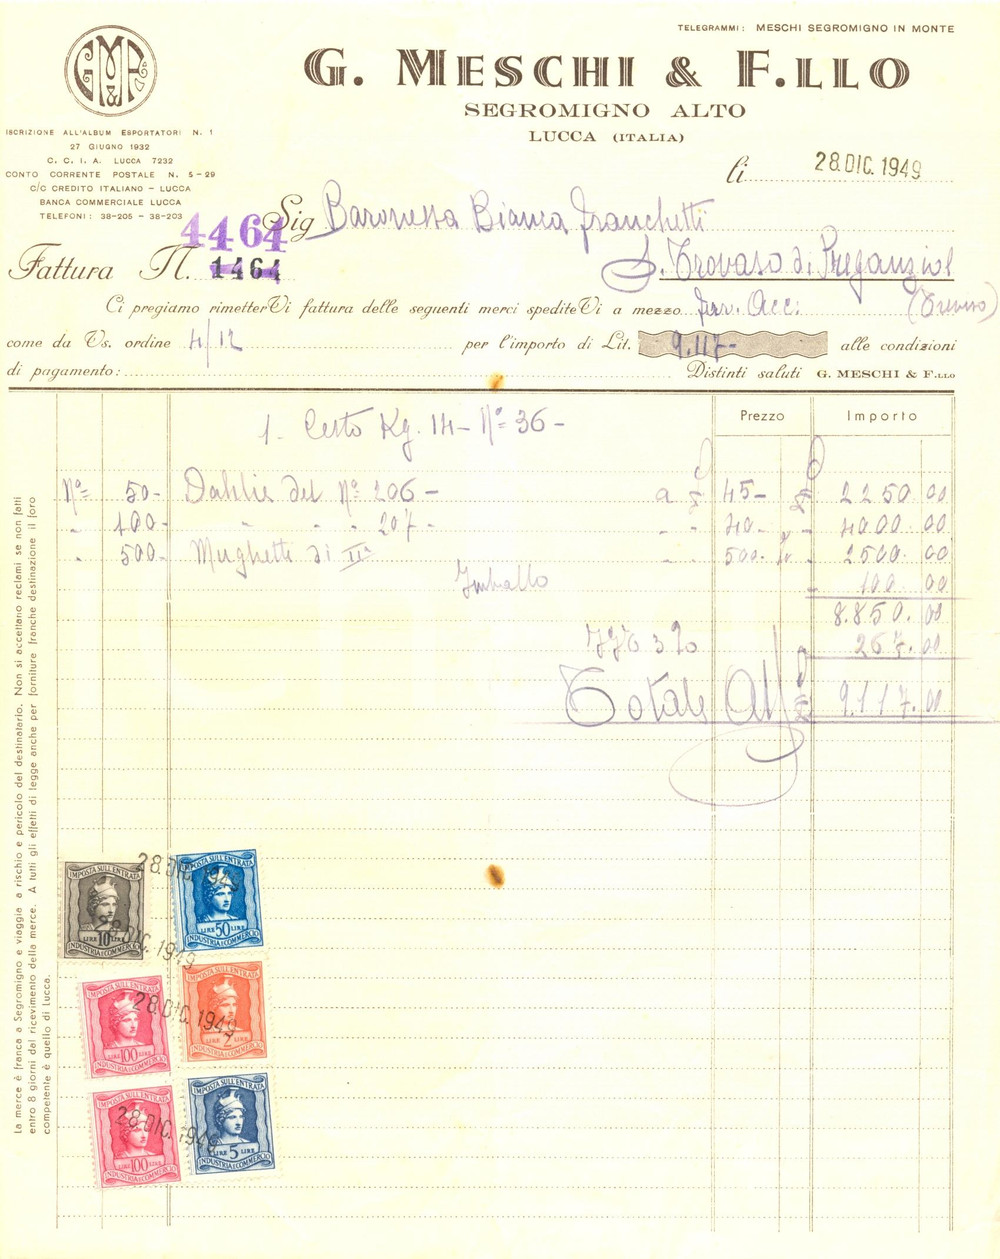 TELEGRAMMI: MESCHI SEGROMIGNO IN MONTE
G. MESCHI & F.LLO
SEGROMIGNO ALTO
LUCCA (ITALIA)
GMF
&
ISCRIZIONE ALL'ALBUM ESPORTATORI N. 1
27 GIUGNO 1932
C. C. I. A. LUCCA 7232
CONTO CORRENTE POSTALE N. 5-29
C/C CREDITO ITALIANO - LUCCA
BANCA COMMERCIALE LUCCA
TELEFONI: 38-205 - 38-203
li 28 DIC. 1949
Sig Baronessa Bianca Franchetti
4464
Fattura N. 1464
S. Trovaso di Preganziol
(Treviso)
Ci pregiamo rimetterVi fattura delle seguenti merci spediteVi a mezzo ferr. Acc:
come da Vs. ordine 4/12 per l'importo di Lit. 9.117- alle condizioni
di pagamento: Distinti saluti G. MESCHI & F.LLO
Prezzo Importo
1- Cesto Kg. 14- N° 36-
N° 50- Dahlie del N° 206- a 45- 2250.00
" 100- " " " 207- " 40- 4000.00
" 500- Mughetti di IIa " 500- 2500.00
Imballo 100.00
8.850.00
IGE 3% 267.00
Totale 9.117.00
La merce è franca a Segromigno e viaggia a rischio e pericolo del destinatario. Non si accettano reclami se non fatti
entro 8 giorni dal ricevimento della merce. A tutti gli effetti di legge anche per forniture franche destinazione il foro
competente è quello di Lucca.
IMPOSTA SULL'ENTRATA
LIRE 10 LIRE
INDUSTRIA E COMMERCIO
28 DIC. 1949
IMPOSTA SULL'ENTRATA
LIRE 50 LIRE
INDUSTRIA E COMMERCIO
28 DIC. 1949
IMPOSTA SULL'ENTRATA
LIRE 100 LIRE
INDUSTRIA E COMMERCIO
28 DIC. 1949
IMPOSTA SULL'ENTRATA
2
INDUSTRIA E COMMERCIO
IMPOSTA SULL'ENTRATA
LIRE 100 LIRE
INDUSTRIA E COMMERCIO
28 DIC. 1949
IMPOSTA SULL'ENTRATA
LIRE 5 LIRE
INDUSTRIA E COMMERCIO